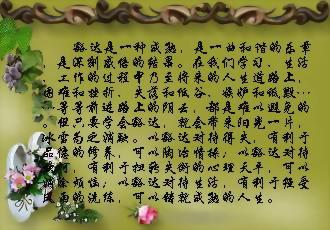 豁达是一种成熟,是一曲和谐的乐章
,是深刻感悟的结果。在我们学习、生活
、工作的过程中乃至将来的人生道路上,
困难和挫折、失落和低谷、嫉妒和孤寂…
…等等前进路上的阴云,都是难以避免的
。但只要学会豁达,就会带来阳光一片,
冰雪为之消融。以豁达对待得失,有利于
品德的修养,可以陶冶情操;以豁达对待
,有利于扭转失衡的心理天平,可以
消除烦恼;以豁达对待生活,有利于接受
风雨的洗练,可以铸就成熟的人生。